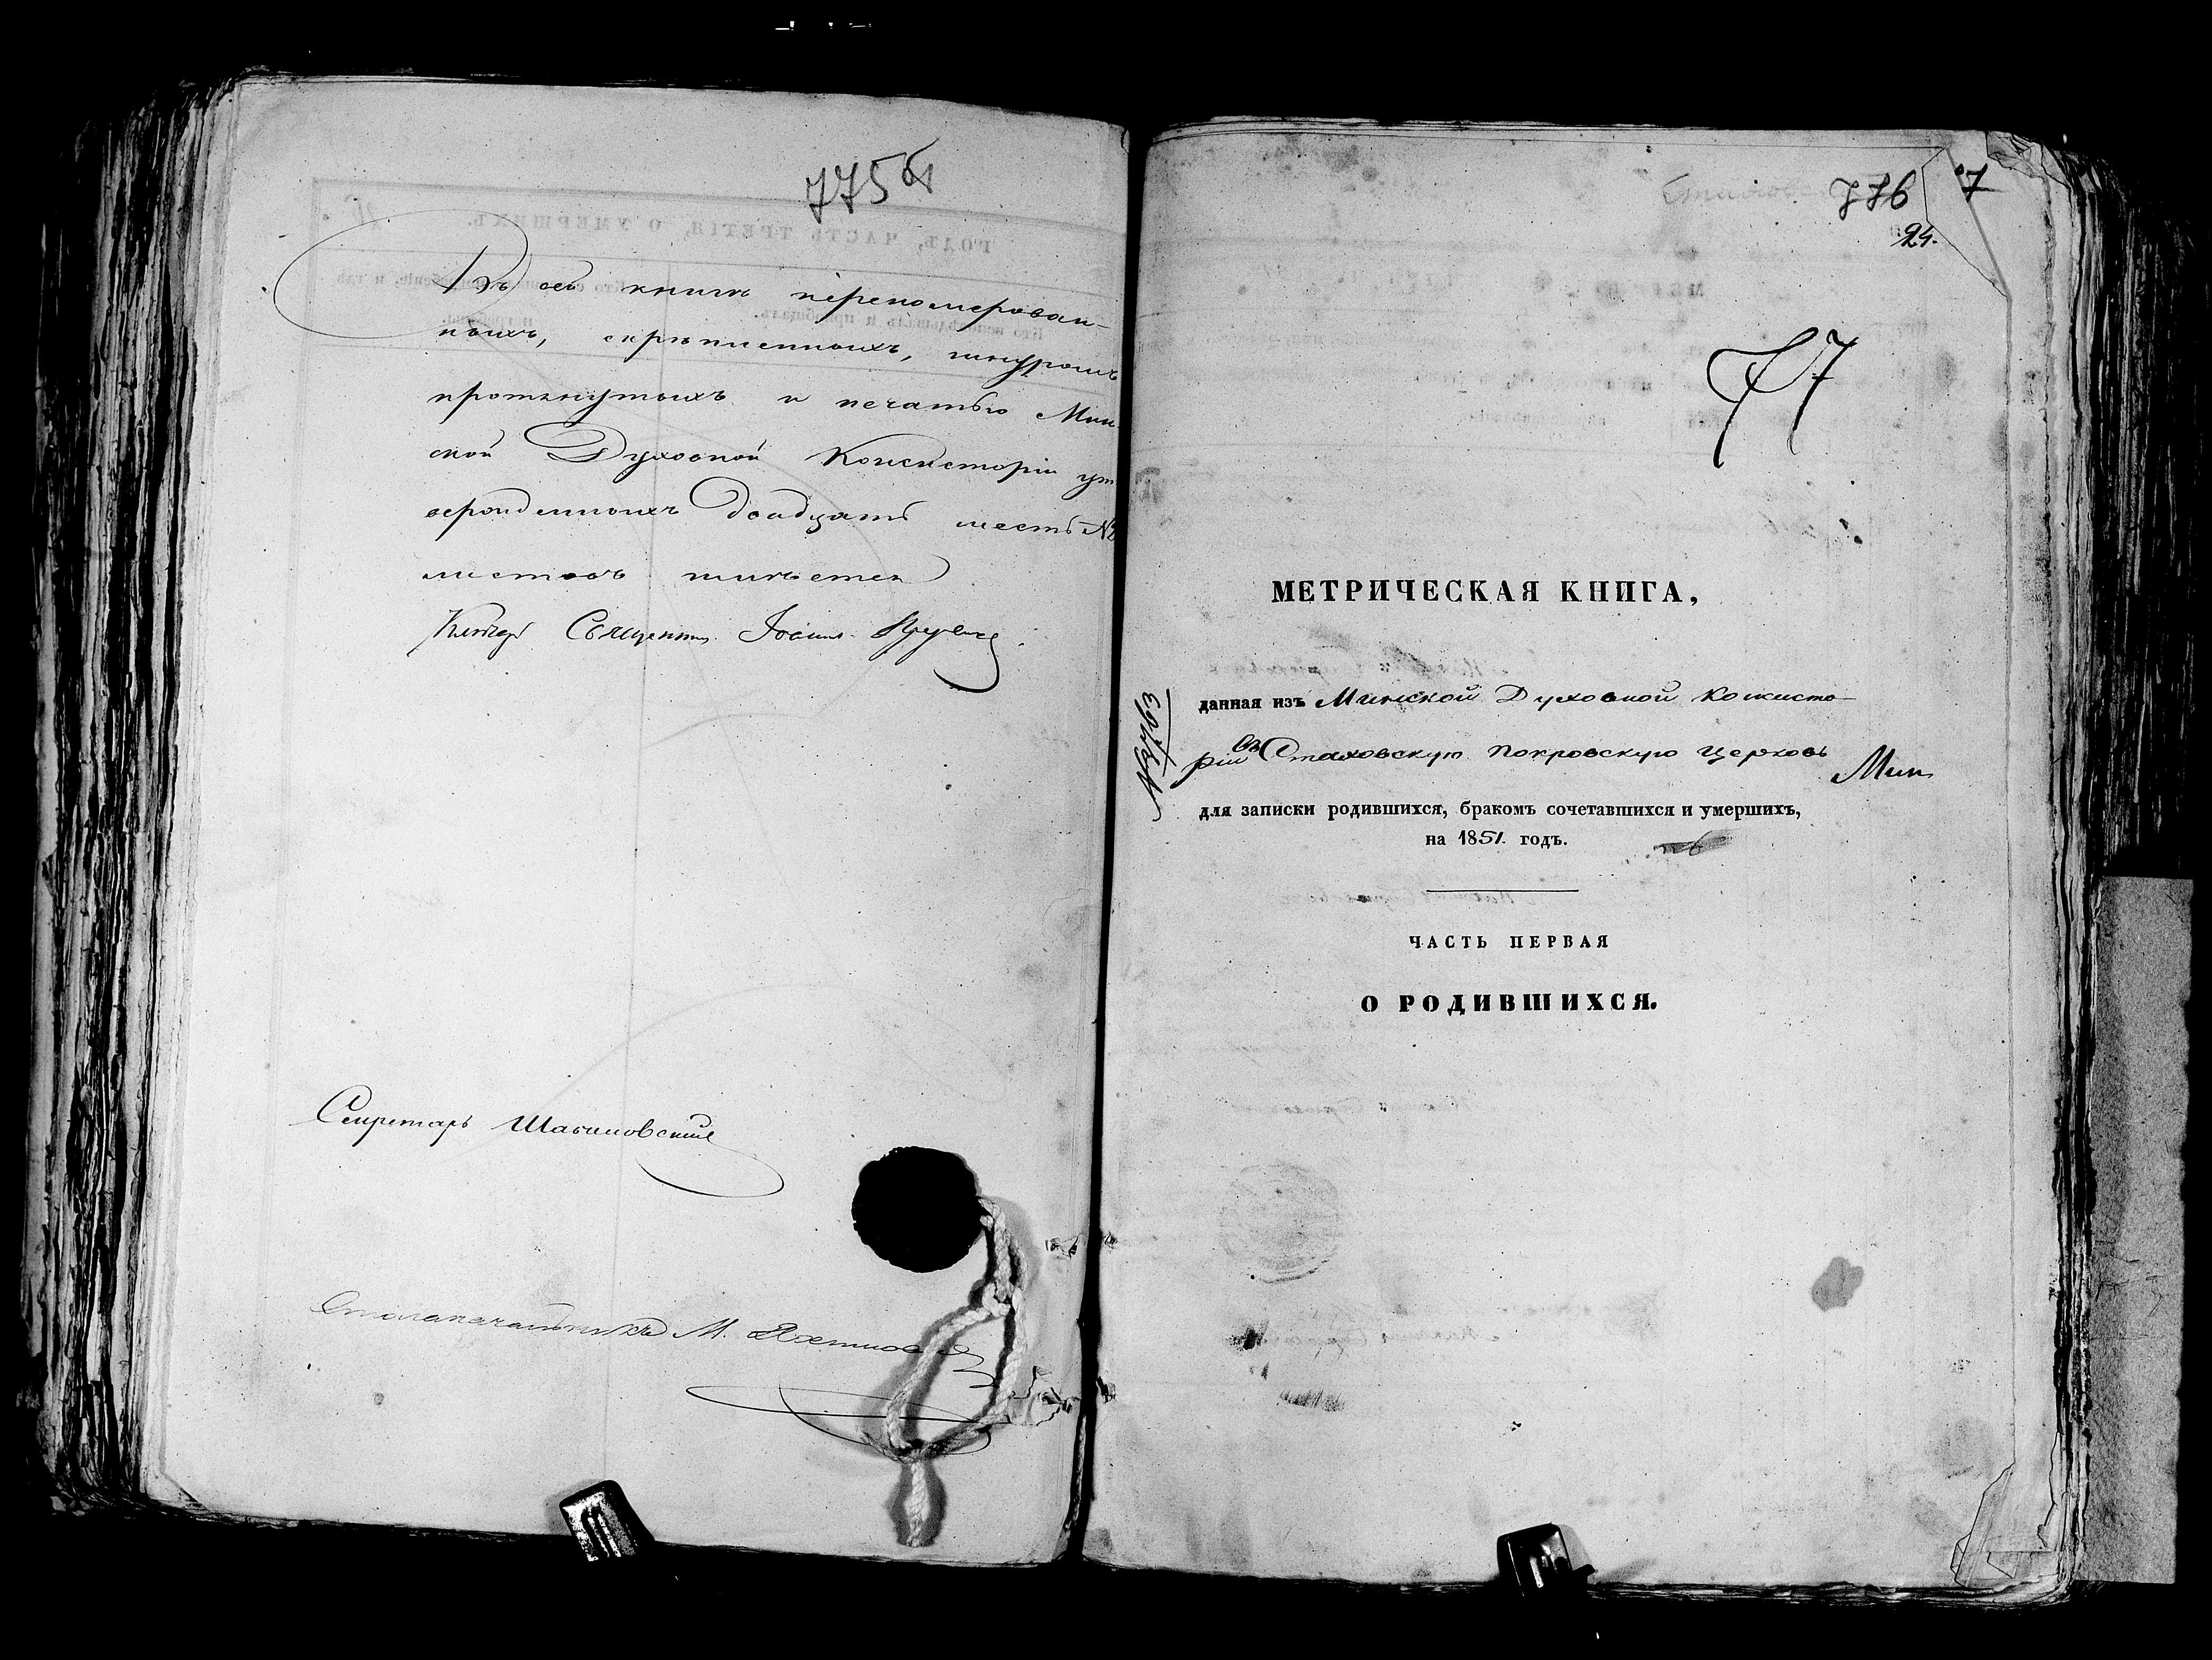 775 об
Въ сей книгѣ перенумерован-
ныхъ, скрѣпленныхъ, шнуромъ
протянутыхъ и печатью Мин
ской Духовной Консисторіи ут
вержденныхъ двадцать шесть №
листовъ имѣется
Священ. Іоаннъ
Секретарь
Столоначальникъ М.
776
7
24.
77
МЕТРИЧЕСКАЯ КНИГА,
№ 3763
данная изъ Минской Духовной Консисто-
ріи въ Стаховскую Покровскую Церковь
Мин
для записки родившихся, бракомъ сочетавшихся и умершихъ,
на 1851. годъ.
ЧАСТЬ ПЕРВАЯ
О РОДИВШИХСЯ.